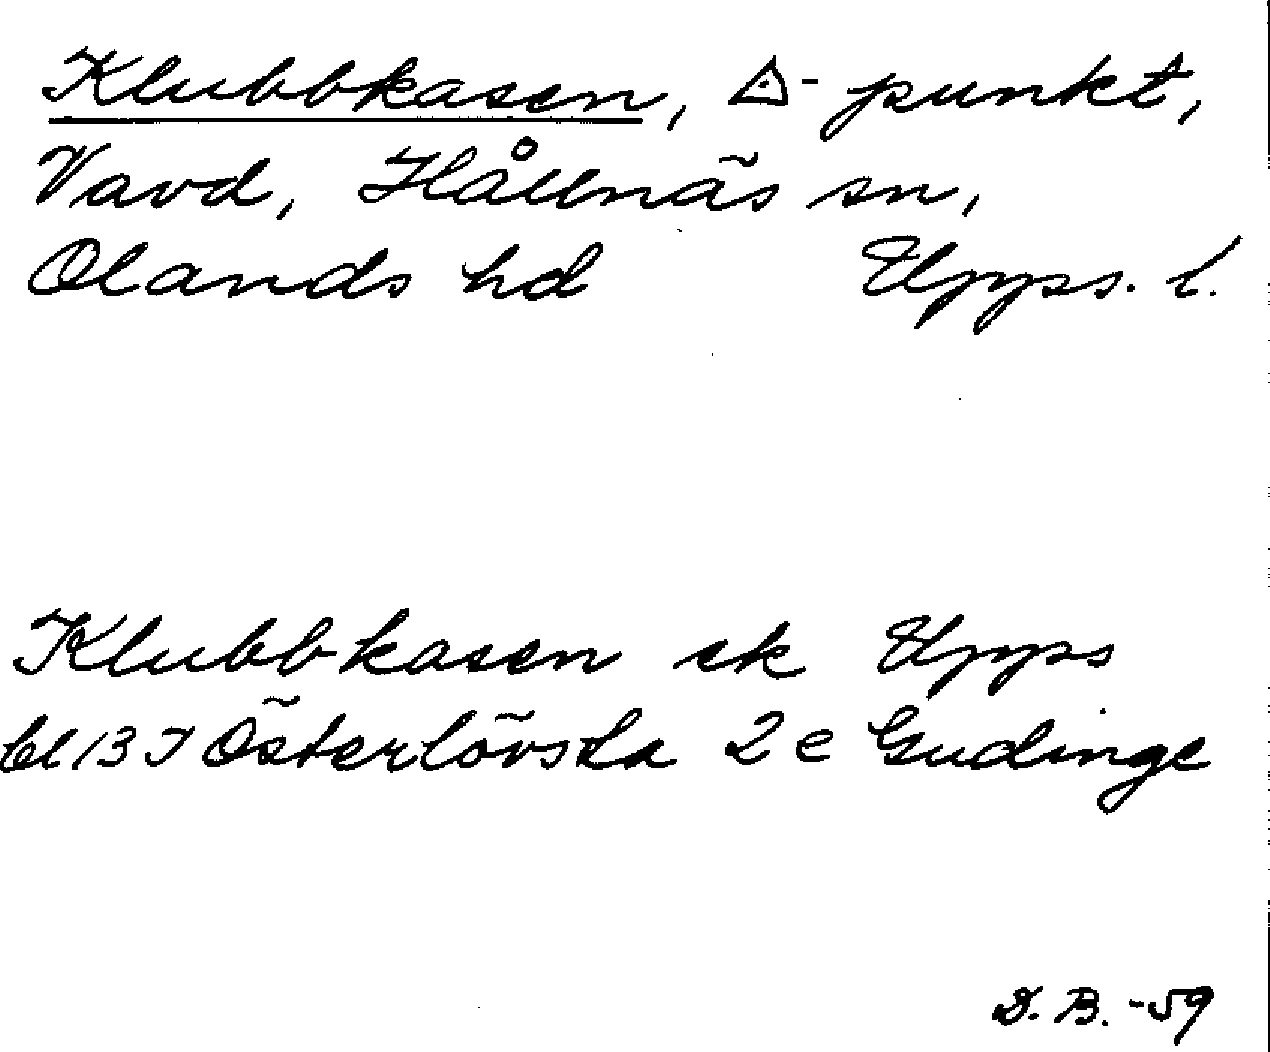 Klubbkasen, △-punkt,
Vavd, Hållnäs sn,
Olands hd Upps. l.
Klubbkasen ek Upps
bl 13 I Österlövsta 2 e Gudinge
D. B. -59